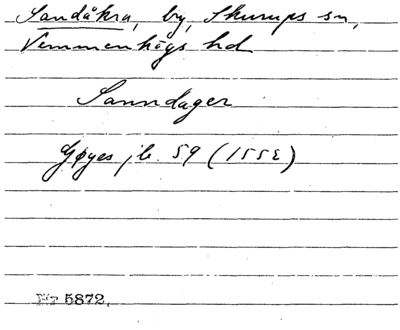 Sandåkra, by, Skurups sn,
Vemmenhögs hd
Sanndager
Gøyes jb. 59 (1553)
Nr 5872.